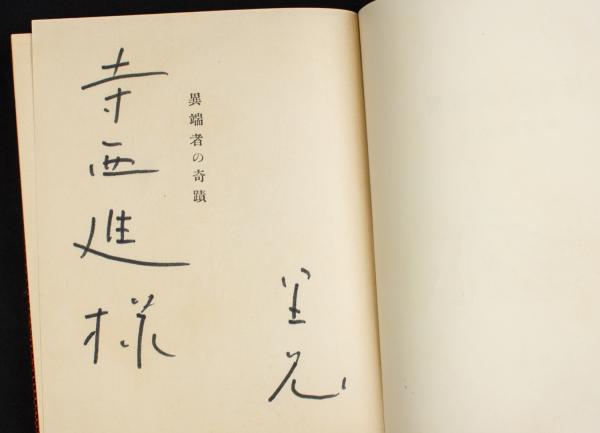 異端者の奇蹟
寺西進様